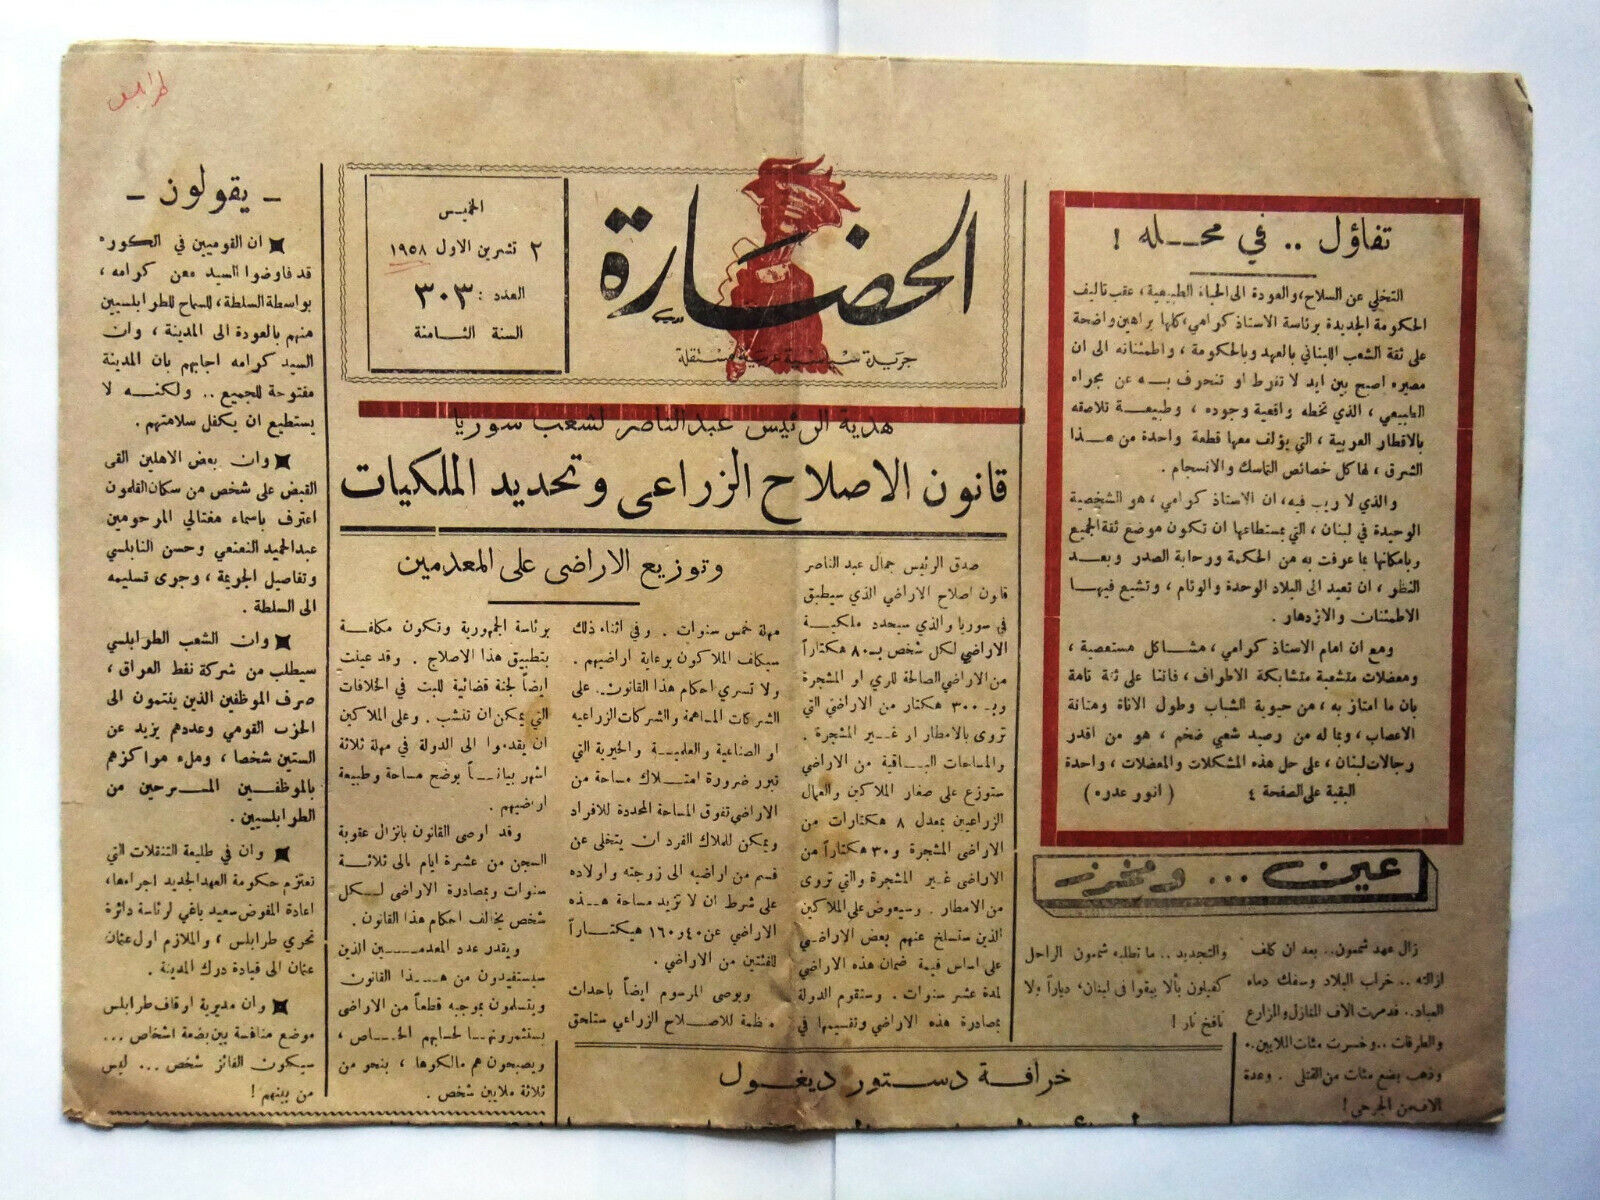 طرابلس
الحضارة
جريدة سياسية عربية مستقلة
الخميس
٢ تشرين الاول ١٩٥٨
العدد : ٣٠٣
السنة الثامنة
تفاؤل .. في محله !
التخلي عن السلاح، والعودة الى الحياة الطبيعية، عقب تاليف
الحكومة الجديدة برئاسة الاستاذ كرامي، كلها براهين واضحة
على ثقة الشعب اللبناني بالعهد وبالحكومة، واطمئنانه الى ان
مصيره اصبح بين ايد لا تفرط او تنحرف به عن مجراه
الطبيعي، الذي تخطه واقعية وجوده، وطبيعة تلاصقه
بالاقطار العربية، التي يؤلف معها قطعة واحدة من هذا
الشرق، لها كل خصائص التماسك والانسجام .
والذي لا ريب فيه، ان الاستاذ كرامي، هو الشخصية
الوحيدة في لبنان، التي بمستطاعها ان تكون موضع ثقة الجميع
وبامكانها بما عرفت به من الحكمة ورحابة الصدر وبعد
النظر، ان تعيد الى البلاد الوحدة والوئام، وتشيع فيها
الاطمئنان والازدهار .
ومع ان امام الاستاذ كرامي، مشاكل مستعصية،
ومعضلات متشعبة متشابكة الاطراف، فاننا على ثقة تامة
بان ما امتاز به، من حيوية الشباب وطول الاناة ومتانة
الاعصاب، وبما له من رصيد شعبي ضخم، هو من اقدر
رجالات لبنان، على حل هذه المشكلات والمعضلات، واحدة
البقية على الصفحة ٤ ( انور عدره )
عين ... ومخرز
زال عهد شمعون .. بعد ان كلف
ازالته .. خراب البلاد وسفك دماء
العباد .. فدمرت الاف المنازل والمزارع
والطرقات .. وخسرت مئات الملايين ..
وذهب بضع مئات من القتلى . وعدة
الاف من الجرحى !
والتجديد .. ما تطلبه شمعون الراحل
كفيلون بألا يبقوا في لبنان، دياراً ولا
نافخ نار !
هدية الرئيس عبد الناصر لشعب سوريا
قانون الاصلاح الزراعي وتحديد الملكيات
وتوزيع الاراضي على المعدمين
صدق الرئيس جمال عبد الناصر
قانون اصلاح الاراضي الذي سيطبق
في سوريا والذي سيحدد ملكية
الاراضي لكل شخص بـ ٨٠ هكتاراً
من الاراضي الصالحة للري او المشجرة
وبـ ٣٠٠ هكتار من الاراضي التي
تروى بالامطار او غير المشجرة .
والمساحات الباقية من الاراضي
ستوزع على صغار الملاكين والعمال
الزراعيين بمعدل ٨ هكتارات من
الاراضي المشجرة و ٣٠ هكتاراً من
الاراضي غير المشجرة والتي تروى
من الامطار . وسيعوض على الملاكين
الذين ستسلخ عنهم بعض الاراضي
على اساس قيمة ضمان هذه الاراضي
لمدة عشر سنوات . وستقوم الدولة
بمصادرة هذه الاراضي وتقسيمها في
مهلة خمس سنوات . وفي اثناء ذلك
سيكلف الملاكون برعاية اراضيهم .
ولا تسري احكام هذا القانون . على
الشركات المساهمة والشركات الزراعيه
او الصناعية والعلمية والخيرية التي
تبرر ضرورة امتلاك مساحة من
الاراضي تفوق المساحة المحددة للافراد
ويمكن للملاك الفرد ان يتخلى عن
قسم من اراضيه الى زوجته واولاده
على شرط ان لا تزيد مساحة هذه
الاراضي عن ٤٠ و ١٦٠ هيكتاراً
للفئتين من الاراضي .
ويوصى المرسوم ايضاً باحداث
منظمة للاصلاح الزراعي ستلحق
برئاسة الجمهورية وتكون مكلفة
بتطبيق هذا الاصلاح . وقد عينت
ايضاً لجنة قضائية للبت في الخلافات
التي يمكن ان تنشب . وعلى الملاكين
ان يقدموا الى الدولة في مهلة ثلاثة
اشهر بياناً يوضح مساحة وطبيعة
اراضيهم .
وقد اوصى القانون بانزال عقوبة
السجن من عشرة ايام الى ثلاثة
سنوات وبمصادرة الاراضي لكل
شخص يخالف احكام هذا القانون .
ويقدر عدد المعدمين الذين
سيستفيدون من هذا القانون
ويتسلمون بموجبه قطعاً من الاراضي
يستثمرونها لحسابهم الخاص،
ويصبحون هم مالكوها، بنحو من
ثلاثة ملايين شخص .
خرافة دستور ديغول
- يقولون -
ان القوميين في الكوره
قد فاوضوا السيد معن كرامه،
بواسطة السلطة، للسماح للطرابلسيين
منهم بالعودة الى المدينة، وان
السيد كرامه اجابهم بان المدينة
مفتوحة للجميع .. ولكنه لا
يستطيع ان يكفل سلامتهم .
وان بعض الاهلين القى
القبض على شخص من سكان القلمون
اعترف باسماء مغتالي المرحومين
عبد الحميد النعنعي وحسن النابلسي
وتفاصيل الجريمة، وجرى تسليمه
الى السلطة .
وان الشعب الطرابلسي
سيطلب من شركة نفط العراق،
صرف الموظفين الذين ينتمون الى
الحزب القومي وعددهم يزيد عن
الستين شخصا، وملء مراكزهم
بالموظفين المسرحين من
الطرابلسيين .
وان في طليعة التنقلات التي
تعتزم حكومة العهد الجديد اجراءها،
اعادة المفوض سعيد باغي لرئاسة دائرة
تحري طرابلس، والملازم اول عثمان
عثمان الى قيادة درك المدينة .
وان مديرية اوقاف طرابلس
موضع منافسة بين بضعة اشخاص ...
سيكون الفائز شخص ... ليس
من بينهم !